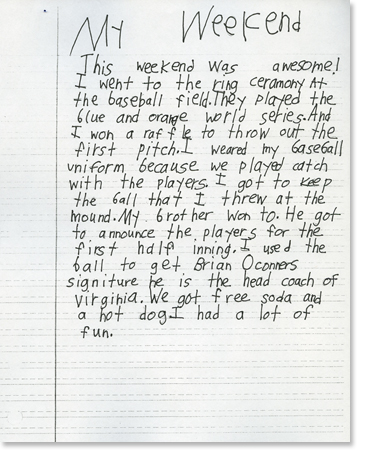 My Weekend
This weekend was awesome!
I went to the ring ceramony At
the baseball field.They played the
blue and orange world series.And
I won a raffle to throw out the
first pitch.I weared my baseball
uniform because we played catch
with the players. I got to keep
the ball that I threw at the
mound.My brother won to. He got
to announce the players for the
first half inning. I used the
ball to get Brian Oconners
signiture he is the head coach of
Virginia. We got free soda and
a hot dog.I had a lot of
fun.